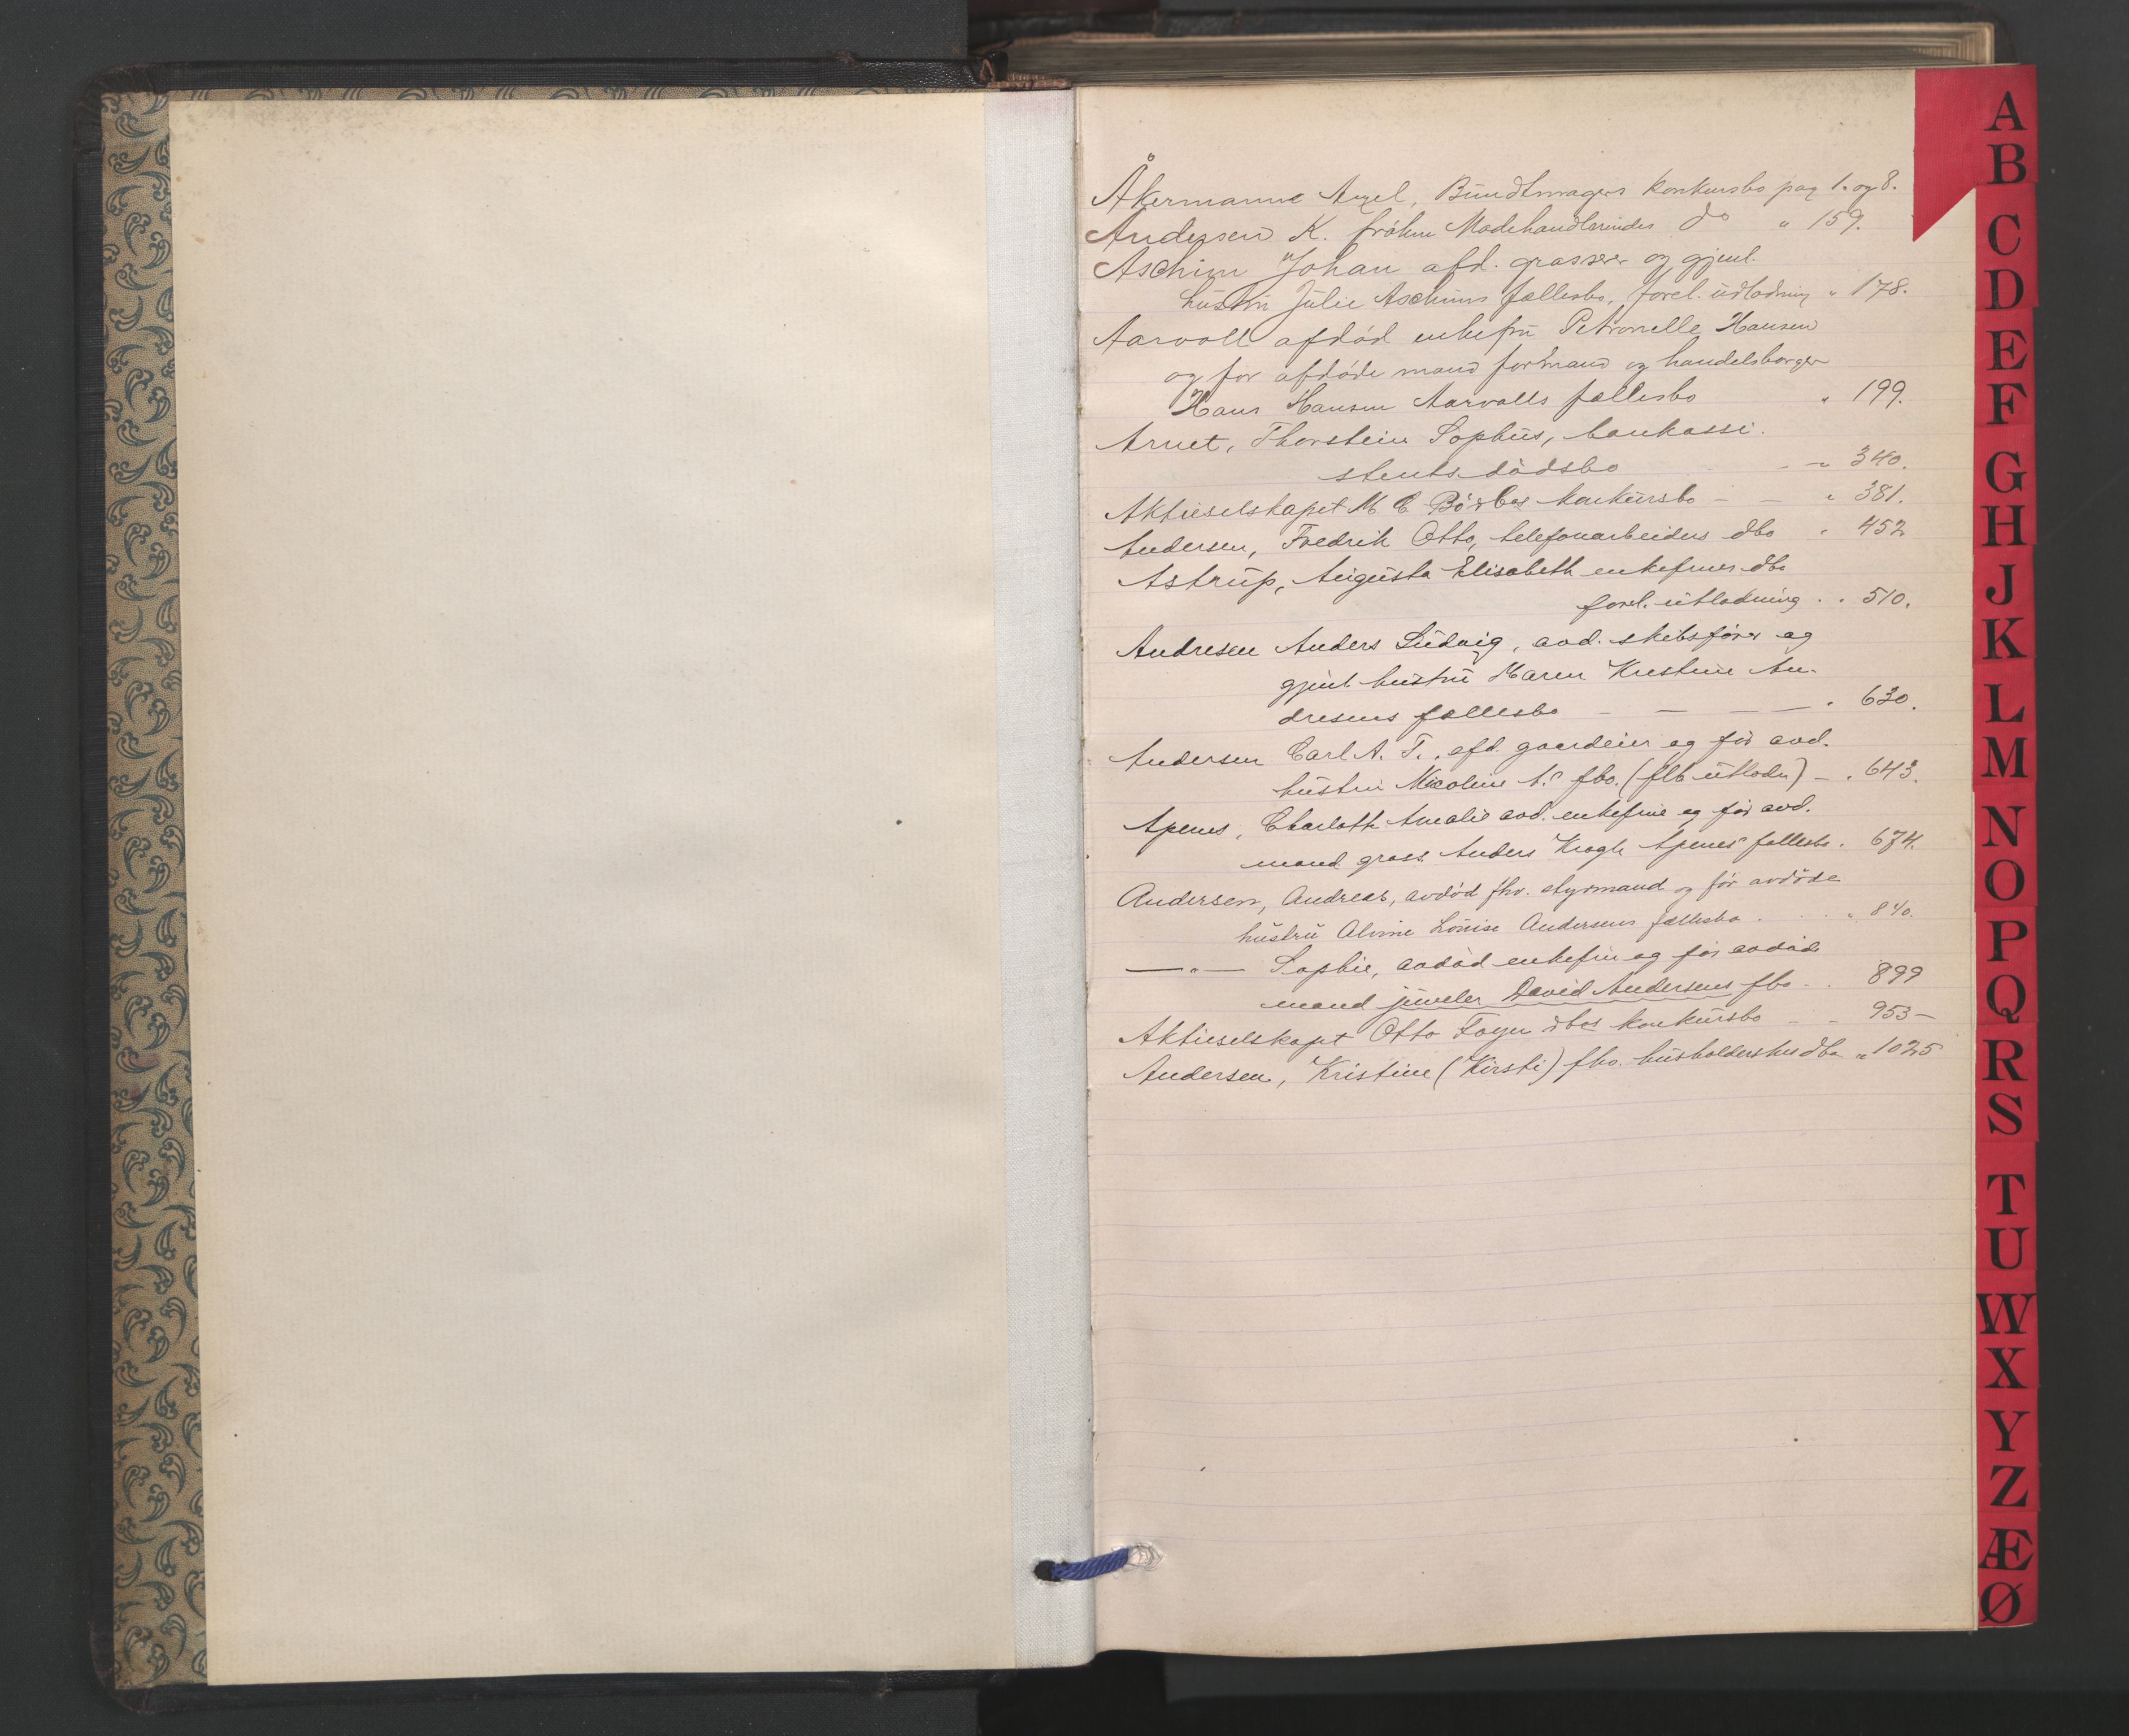 Åkermanne Axel, Bundtmagers konkursbo pag 1. og 8.
Andersen K. frøken Modehandlerindes do " 159.
Aschim Johan afd. grosserer og gjenl.
hustru Julie Aschims fællesbo, forel. udlodning " 178.
Aarvoll afdød enkefru Petronelle Hansen
og før afdøde mand formand og handelsborger
Hans Hansen Aarvolls fællesbo " 199.
Arnet, Thorstein Sophus, bankassi-
stents dødsbo " 340.
Aktieselskapet M C Børbes konkursbo - - " 381.
Andersen, Fredrik Otto, telefonarbeiders dbo " 452
Astrup, Augusta Elisabeth enkefrues dbo
forel. utlodning . . 510.
Andresen Anders Ludvig, avd. skibsfører og
gjenl hustru Maren Kristine An-
dresens fællesbo - - - - " 630.
Andersen Carl A. T., afd. gaardeier og før avd.
hustru Nicoline A.s fbo. (flb utlodn) - " 643.
Apenes, Charlotte Amalie avd. enkefrue og før avd.
mand gross. Anders Krogh Apenes' fællesbo. 674.
Andersen, Andreas, avdød fhv. styrmand og før avdøde
hustru Alvine Louise Andersens fællesbo . . . " 840.
—"— Sophie, avdød enkefru og før avdøde
mand juveler David Andersens fbo - . 899
Aktieselskapet Otto Foyn dbos konkursbo - - 953-
Andersen, Kristine (Kirsti) fhv. husholderskes dbo " 1025
A
B
C
D
E
F
G
H
J
K
L
M
N
O
P
Q
R
S
T
U
W
X
Y
Z
Æ
Ø